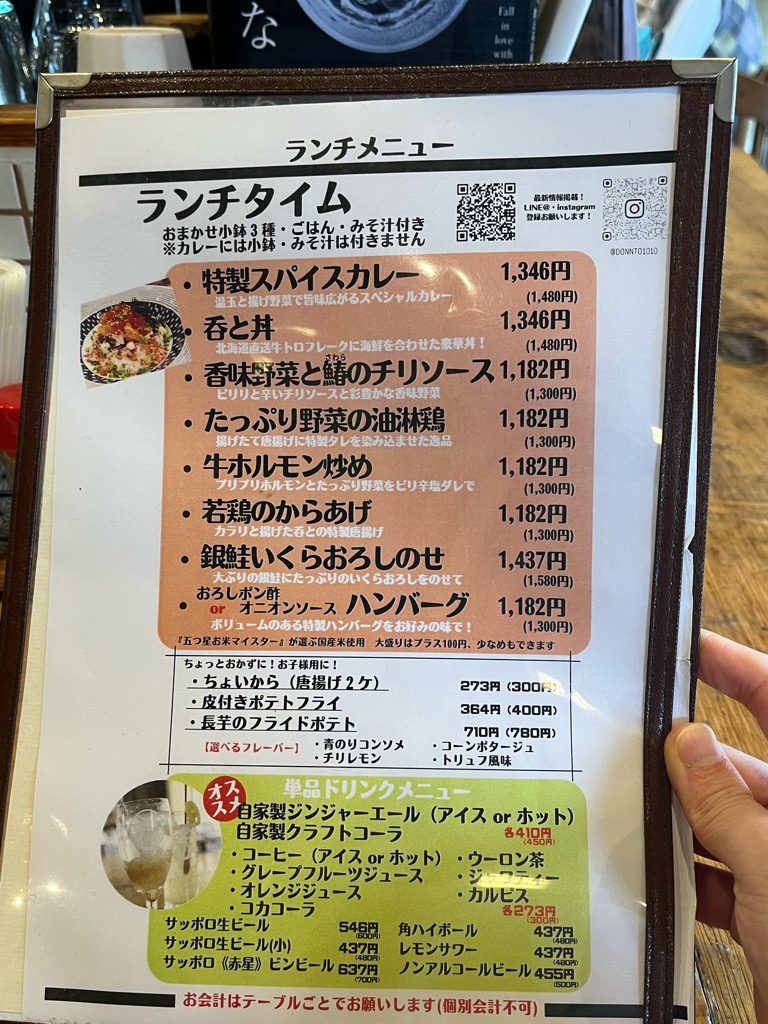 な
Fall
in
love
with
ランチメニュー
ランチタイム
おまかせ小鉢3種・ごはん・みそ汁付き
※カレーには小鉢・みそ汁は付きません
最新情報掲載！
LINE@・instagram
登録お願いします！
@DONNTO1010
・特製スパイスカレー 1,346円
温玉と揚げ野菜で旨味広がるスペシャルカレー (1,480円)
・呑と丼 1,346円
北海道直送牛トロフレークに海鮮を合わせた豪華丼！ (1,480円)
さわら
・香味野菜と鰆のチリソース 1,182円
ピリリと辛いチリソースと彩豊かな香味野菜 (1,300円)
・たっぷり野菜の油淋鶏 1,182円
揚げたて唐揚げに特製タレを染み込ませた逸品 (1,300円)
・牛ホルモン炒め 1,182円
プリプリホルモンとたっぷり野菜をピリ辛塩ダレで (1,300円)
・若鶏のからあげ 1,182円
カラリと揚げた呑との特製唐揚げ (1,300円)
・銀鮭いくらおろしのせ 1,437円
大ぶりの銀鮭にたっぷりのいくらおろしをのせて (1,580円)
・おろしポン酢 or オニオンソース ハンバーグ 1,182円
ボリュームのある特製ハンバーグをお好みの味で！ (1,300円)
『五つ星お米マイスター』が選ぶ国産米使用 大盛りはプラス100円、少なめもできます
ちょっとおかずに！お子様用に！
・ちょいから（唐揚げ2ケ） 273円(300円)
・皮付きポテトフライ 364円(400円)
・長芋のフライドポテト 710円(780円)
【選べるフレーバー】 ・青のりコンソメ ・コーンポタージュ
・チリレモン ・トリュフ風味
単品ドリンクメニュー
オススメ
自家製ジンジャーエール（アイス or ホット）
自家製クラフトコーラ 各410円
(450円)
・コーヒー（アイス or ホット） ・ウーロン茶
・グレープフルーツジュース ・ジャスティー
・オレンジジュース ・カルピス
・コカコーラ 各273円
(300円)
サッポロ生ビール 546円(600円) 角ハイボール 437円(480円)
サッポロ生ビール(小) 437円(480円) レモンサワー 437円(480円)
サッポロ《赤星》ビンビール 637円(700円) ノンアルコールビール 455円(500円)
お会計はテーブルごとでお願いします(個別会計不可)